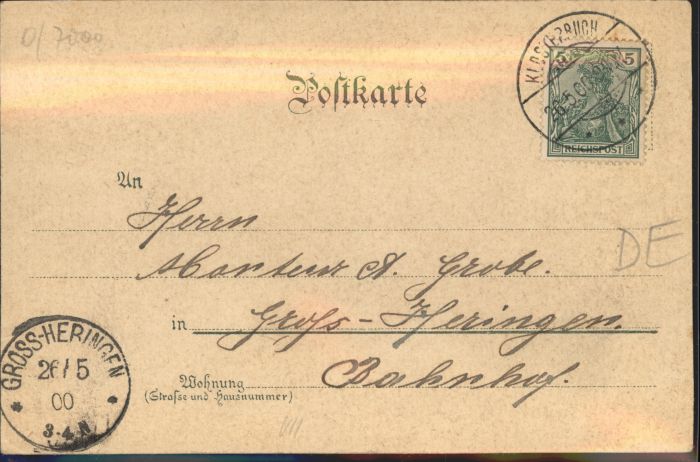 D/7000
KLOSTERBUCH
26.5.00
5 5
REICHSPOST
Postkarte
An
Herrn
Monteur A. Grobe.
DE
in Gross-Heringen.
Wohnung Bahnhof.
(Strasse und Hausnummer)
GROSS-HERINGEN
26/5
00
3-4 N